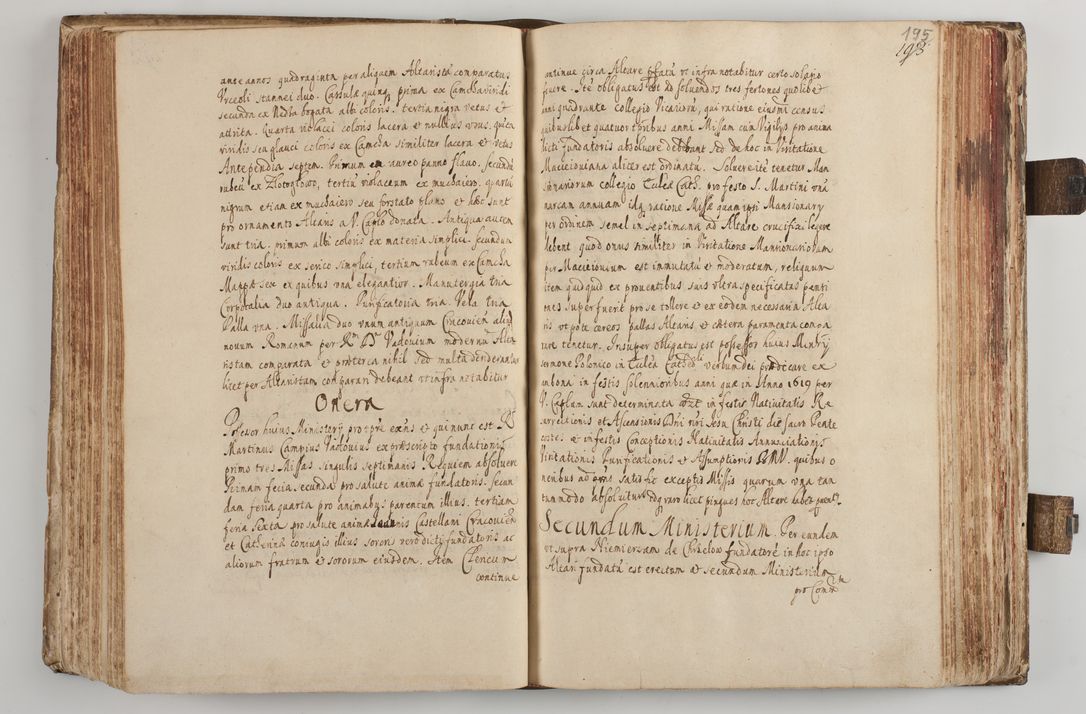 ante annos quadraginta per aliquem Altaristã comparatus
Vrceoli stannei duo. Casulæ quinq; prima ex Camcha viridi
secunda ex Kedta bogata albi coloris. tertia nigra vetus et
attrita. Quarta violacei coloris lacera et nullius vsus. quinta
viridis seu glauci coloris ex Camcha similiter lacera et vetus
Antependia septem. Primum ex aureo panno flauo. secundũ
rubeũ ex Zlotogłowo, tertiũ violaceum ex muchaiero. quartũ
nigrum etiam ex muchaiero seu forstato plano et hæc sunt
pro ornamento Altaris a V. Caplo donata. Antiqua autem
sunt tria. primum albi coloris ex materia simplici. secundum
viridis coloris ex serico simplici, tertium rubeum ex Camcha
Mappæ sex ex quibus vna elegantior. Manutergia tria
Corporalia duo antiqua. Purificatoria tria. Vela tria
Palla vna. Missalia duo vnum antiquum Cracouieñ aliud
nouum Romanum per Rm D Vadouium modernũ Alta
ristam comparata et præterea nihil sed multa desiderantur
licet per Altaristam comparari debeant vt infra notabitur
Onera
Possesor huius Ministerij pro tpre exñs et qui nunc est Rs
Martinus Campius Vadouius ex præscripto fundationis
primo tres Missas singulis septimanis Requiem absoluere
Primam feria secunda pro salute animæ fundatoris. Secun
dam feria quarta pro animabus parentum illius. tertiam
feria Sexta pro salute animæ Ioannis Castellani Cracouieñ
et Catherinæ coniugis illius sororis vero dicti fundatoris ac
aliorum fratrum et sororum eiusdem. Item Clericum
continue
195
198
continue circa Altare pfatũ vt infra notabitur certo solario
fouere. Itẽ obligatus est ad soluendos tres fertones quolibet
anni quadrante collegio Vicariorũ, qui ratione eiusmi census
quibuslibet quatuor tpribus anni Missam cum Vigilijs pro anima
dicti fundatoris absoluere debebunt sed de hoc in Visitatione
Macieiouiana aliter est ordinatũ. Soluere itẽ tenetur Man
sionariorum collegio Eccleæ Cath. pro festo S. Martini vnã
marcam annuam idq; ratione Missæ quam ipsi Mansionarij
per ordinem semel in septimana ad Altare crucifixi legere
debent quod onus similiter in Visitatione Mansionariorum
per Macieiouium est immutatũ et moderatum, reliquum
item quidquid ex prouentibus suis vltra specificatas pensi
ones superfuerit pro se tollere et ex eodem necessaria Alta
ris vt pote cereos pallas Altaris et cætera paramenta compa
rare tenetur. Insuper obligatus est possessor huius Ministrij
sermone Polonico in Eccleã Cathedrli verbum dei prædicare ex
ambona in festis solennioribus anni quæ in Anno 1619 per
V. Caplum sunt determinata vzt in festis Natiuitatis Re
surrectionis et Ascensionis Dñi nri Iesu Christi die sacro Pente
costes et in festis Conceptionis Natiuitatis Annunciationis
Visitationis Purificationis et Assumptionis BMV. quibus o
neribus ad præns satisfit exceptis Missis quarum vna tan
tummodo absoluitur
Secundum Ministerium. Per eundem
vt supra Niemierzam de Chmelow fundatorẽ in hoc ipso
Altari fundatũ est erectum et secundum Ministerium
pro